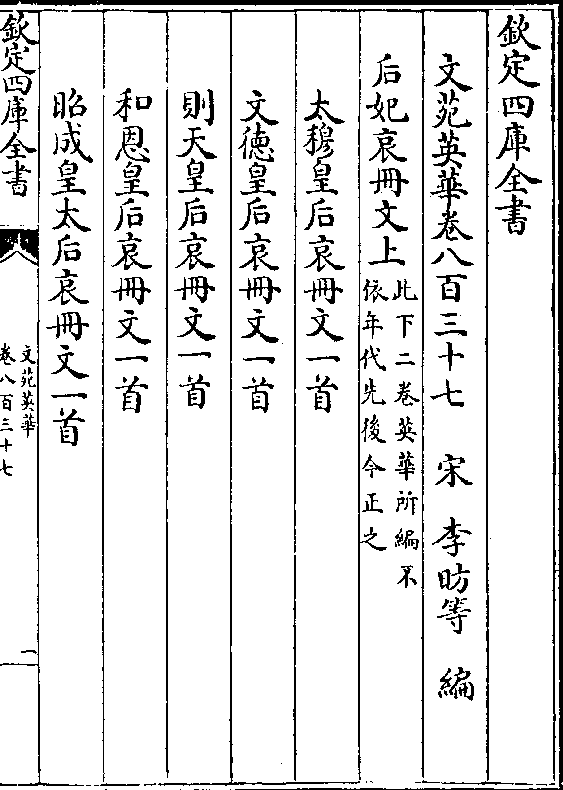 欽定四庫全書
文苑英華卷八百三十七　宋　李昉等　編
后妃哀冊文上
此下二卷英華所編不
依年代先後今正之
太穆皇后哀冊文一首
文徳皇后哀冊文一首
則天皇后哀冊文一首
和思皇后哀冊文一首
昭成皇太后哀冊文一首
欽定四庫全書
文苑英華
卷八百三十七
一